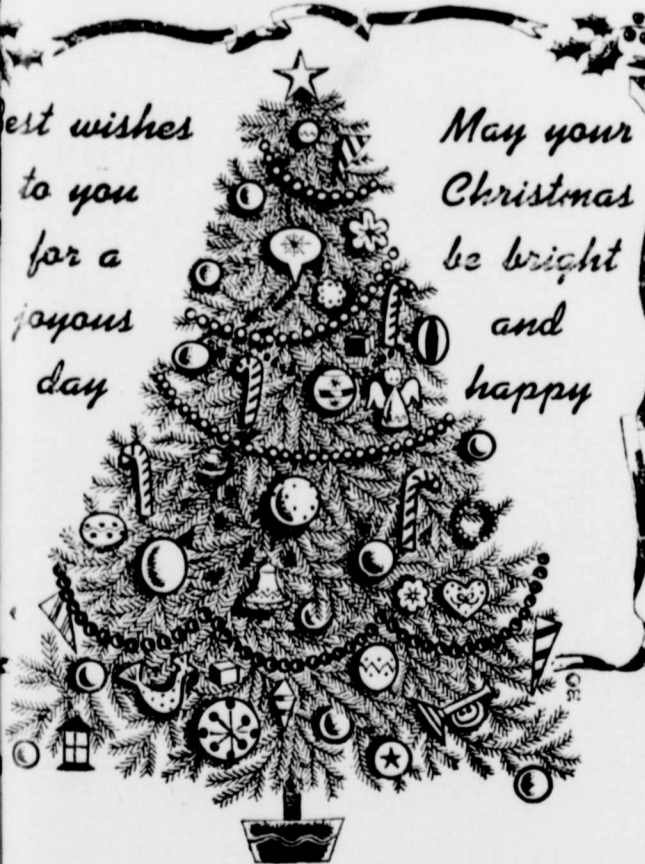 est wishes
to you
for a
joyous
day
May your
Christmas
be bright
and
happy